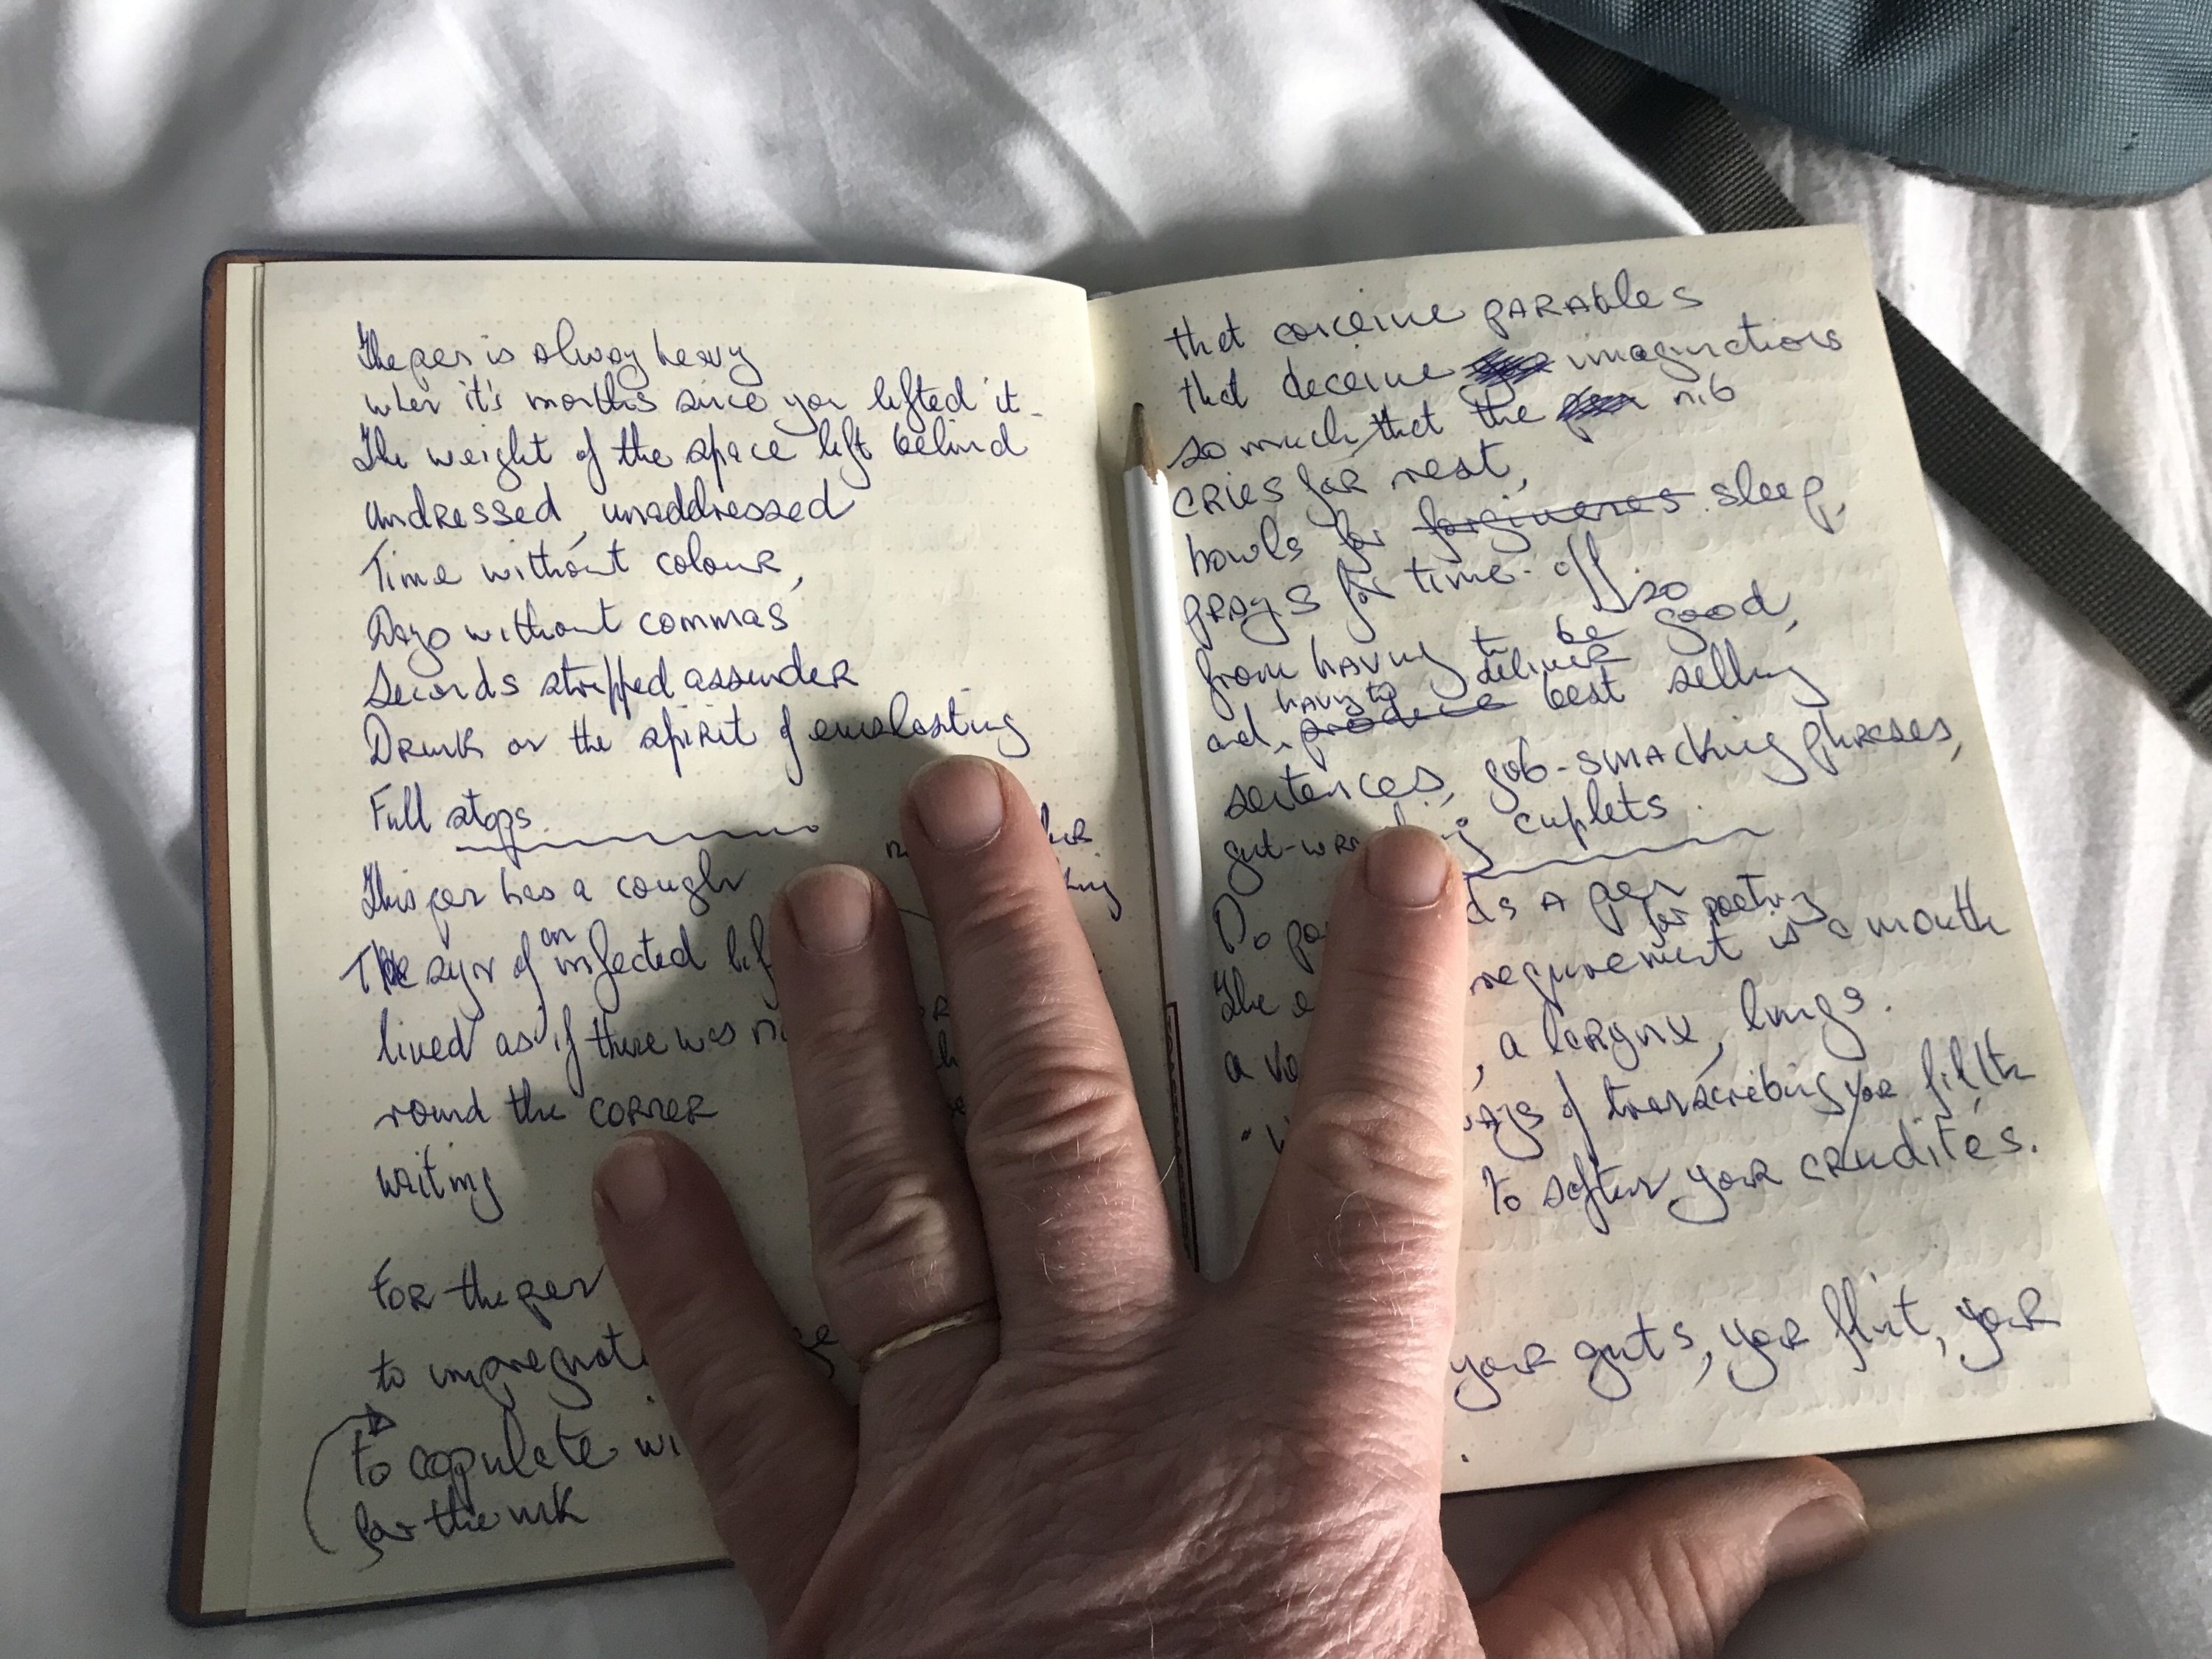 The pen is alway heavy
when it's months since you lifted it.
The weight of the space left behind
undressed, unaddressed
Time without colour,
Days without commas
Seconds stripped assunder
Drunk on the spirit of everlasting
Full stops
This pen has a cough
The sign of an infected
lived as if there was
round the corner
waiting
For the pen
to
to copulate
for the ink
that conceive parables
that deceive imaginations
so much, that the nib
cries for rest,
howls for forgiveness sleep,
prays for time-off
from having to be so good,
and, having to produce deliver best selling
sentences, gob-smacking phrases,
cuplets.
Do a pen
The requirement for poetry is a mouth
a , a larynx, lungs.
of transcribing your filth
to soften your crudités.
your guts, your flint, your